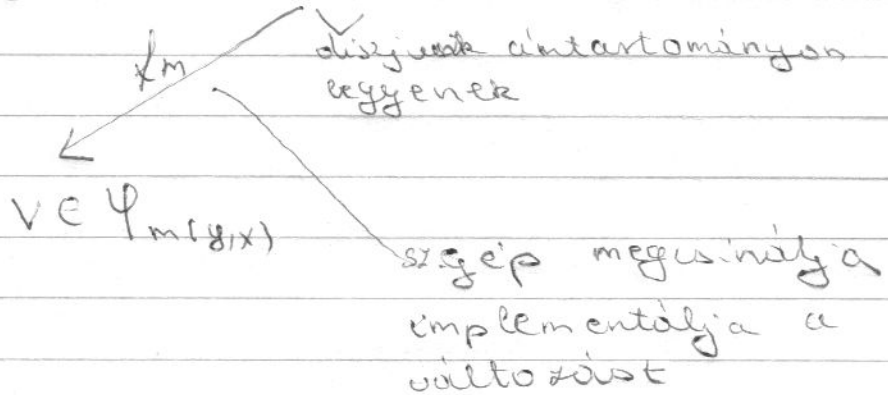 diszjunk címtartományon
legyenek
fm
V ∈ Ψm(y,x)
szgép megcsinálja
implementálja a
változást